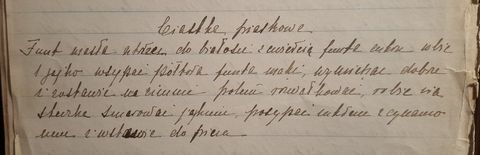 Ciastka piaskowe
Funt masła utrzeć do białości z ćwiercią funta cukru wbić
1 jajko wsypać półtora funta mąki, wymieszać dobrze
i zostawić na zimnie potem rozwałkować, robić cia
steczka smarować jajkiem, posypać cukrem z cynamo
nem i wstawić do pieca